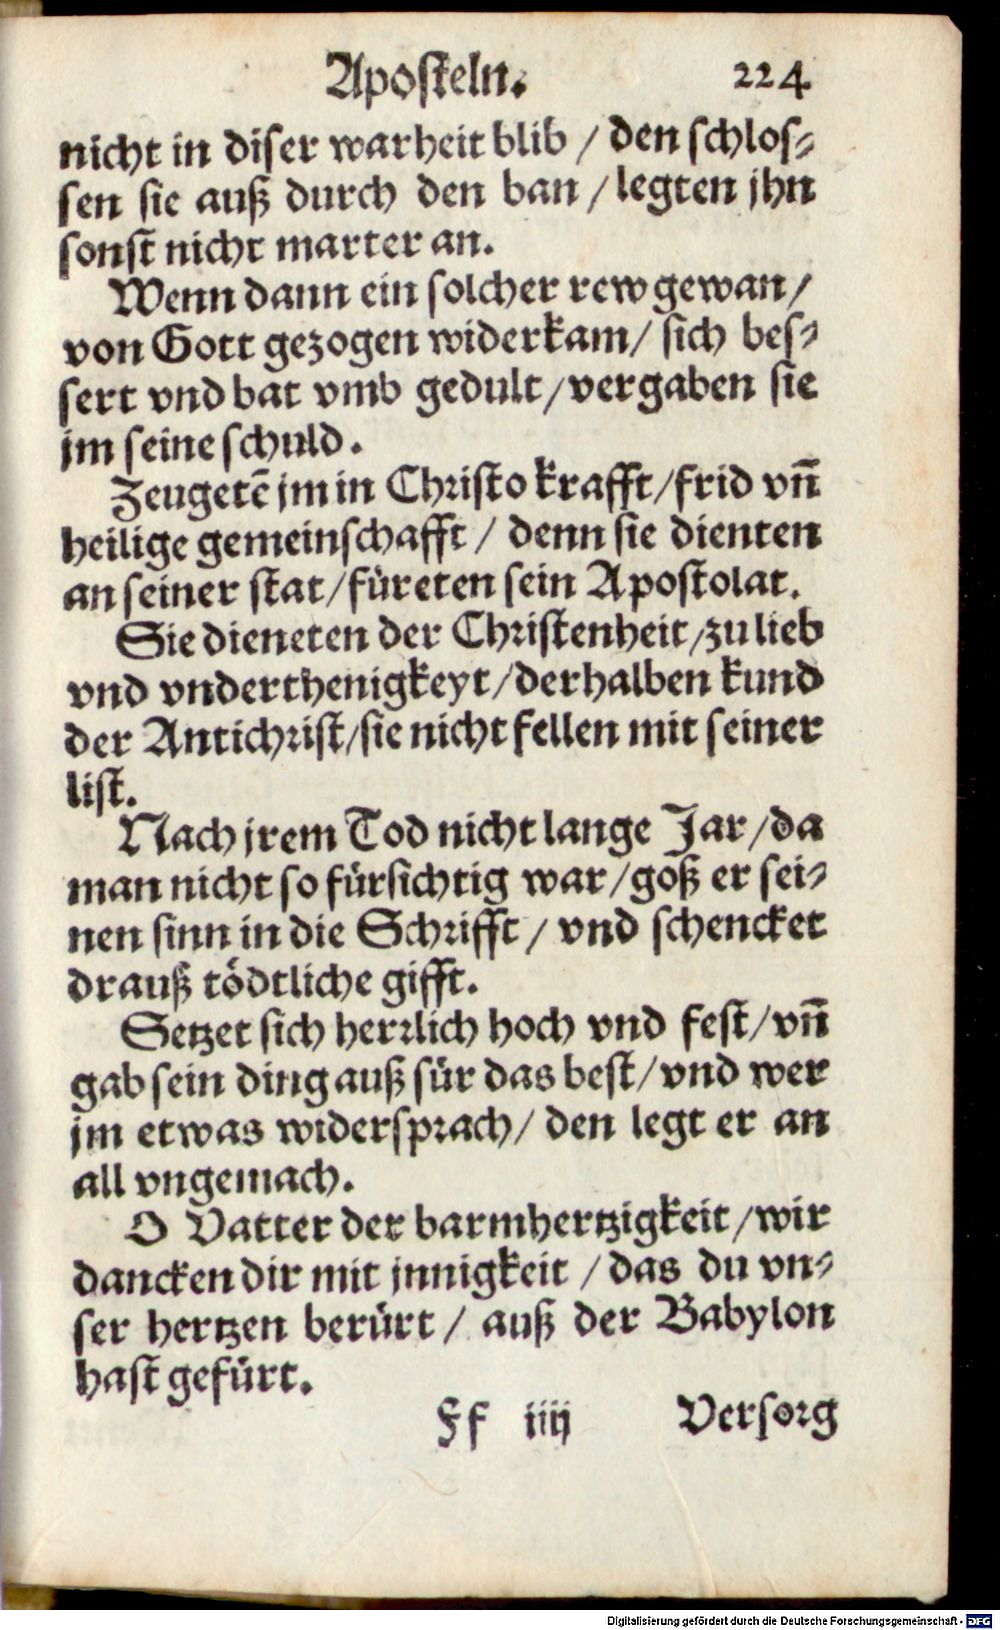 Aposteln. 224
nicht in diser warheit blib / den schlos⸗
sen sie auß durch den ban / legten jhn
sonst nicht marter an.
Wenn dann ein solcher rew gewan /
von Gott gezogen widerkam / sich bes⸗
sert vnd bat vmb gedult / vergaben sie
jm seine schuld.
Zeugetē jm in Christo krafft / frid vñ
heilige gemeinschafft / denn sie dienten
an seiner stat / füreten sein Apostolat.
Sie dieneten der Christenheit / zu lieb
vnd vnderthenigkeyt / derhalben kund
der Antichrist / sie nicht fellen mit seiner
list.
Nach jrem Tod nicht lange Jar / da
man nicht so fürsichtig war / goß er sei⸗
nen sinn in die Schrifft / vnd schencket
drauß tödtliche gifft.
Setzet sich herrlich hoch vnd fest / vñ
gab sein ding auß für das best / vnd wer
jm etwas widersprach / den legt er an
all vngemach.
O Vatter der barmhertzigkeit / wir
dancken dir mit jnnigkeit / das du vn⸗
ser hertzen berürt / auß der Babylon
hast gefürt.
Ff iiij Versorg
Digitalisierung gefördert durch die Deutsche Forschungsgemeinschaft - DFG